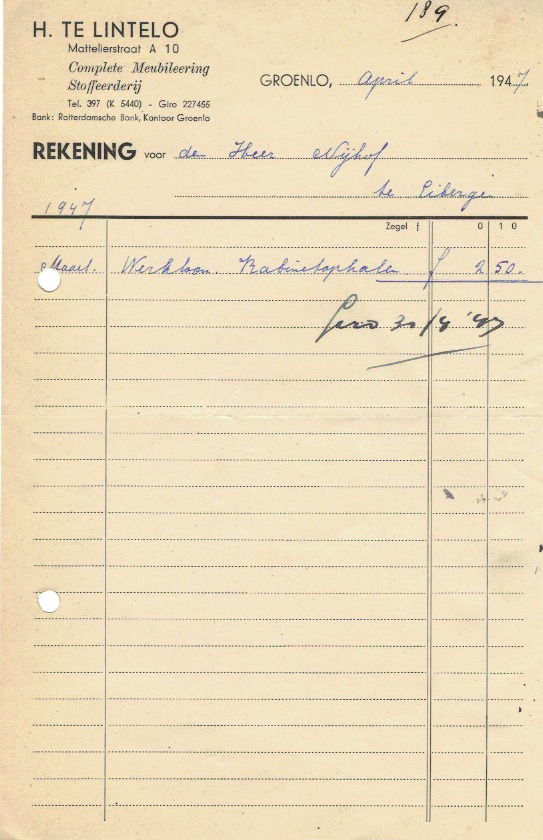 189.
H. TE LINTELO
Mattelierstraat A 10
Complete Meubileering
Stoffeerderij
Tel. 397 (K 5440) - Giro 227455
Bank: Rotterdamsche Bank, Kantoor Groenlo
GROENLO, April 1947.
REKENING voor den Heer Nijhof
te Eibergen
1947
Zegel f 0 10
Maart. Werkloon Kabinetophalen f 2 50.-
Giro 30/4 '47